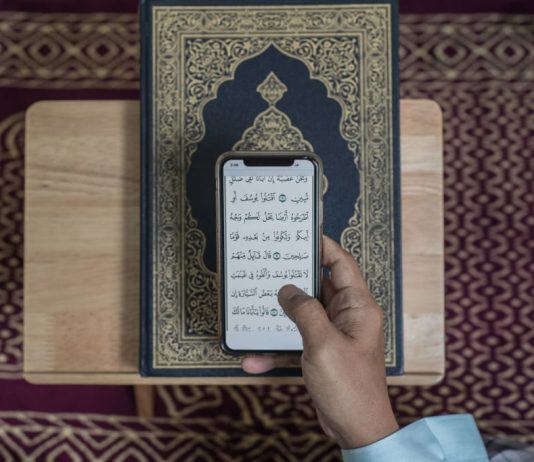 وَنَحْنُ عُصْبَةٌ إِنَّ أَبَانَا لَفِى ضَلَٰلٍ
مُّبِينٍ ٱقْتُلُوا۟ يُوسُفَ أَوِ
ٱطْرَحُوهُ أَرْضًا يَخْلُ لَكُمْ وَجْهُ
أَبِيكُمْ وَتَكُونُوا۟ مِنۢ بَعْدِهِۦ قَوْمًا
صَٰلِحِينَ قَالَ قَآئِلٌ مِّنْهُمْ
لَا تَقْتُلُوا۟ يُوسُفَ وَأَلْقُوهُ فِى غَيَٰبَتِ
بَعْضُ ٱلسَّيَّارَةِ إِن
قَالُوا۟ يَٰٓأَبَانَا مَا لَكَ